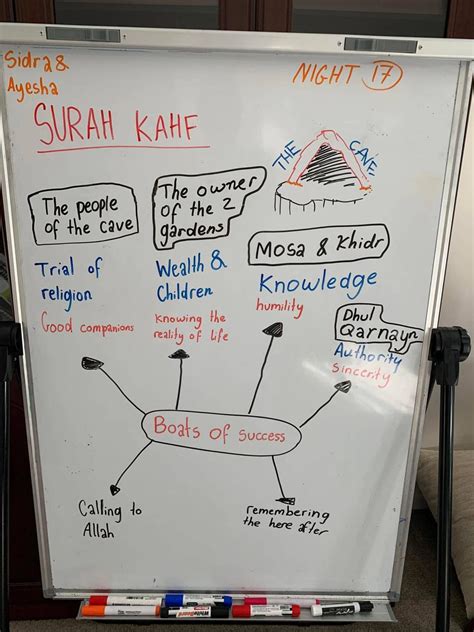 Sidra &
Ayesha
NIGHT 17
SURAH KAHF
THE CAVE
The people
of the cave
The owner
of the 2
gardens
Mosa & Khidr
Trial of
religion
Wealth &
Children
Knowledge
Good companions
Knowing the
reality of life
humility
Dhul
Qarnayn
Authority
sincerity
Boats of success
Calling to
Allah
remembering
the here after